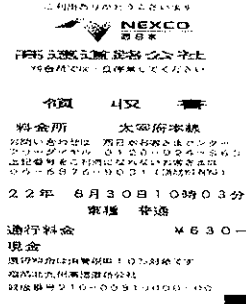 ご利用ありがとうございます
NEXCO
西日本
料金所では一旦停車してください
領 収 書
料金所 太宰府本線
お問い合わせは 西日本お客さまセンター
フリーダイヤル 0120-924-863
上記番号をご利用になれないお客さまは
06-6876-9031(通話料有料)
22年 8月30日10時03分
車種 普通
通行料金 ¥630-
現金
福岡北九州高速道路公社